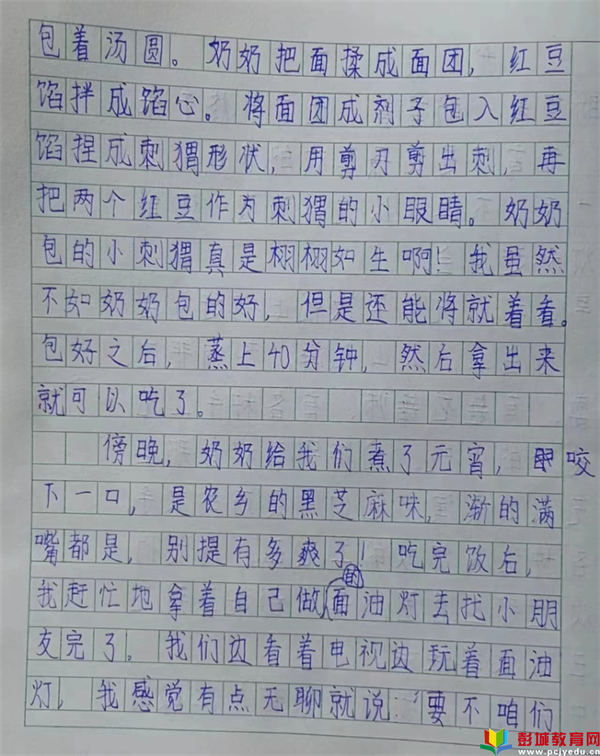 包着汤圆。奶奶把面揉成面团，红豆
馅拌成馅心。将面团成剂子包入红豆
馅捏成刺猬形状，用剪刀剪出刺，再
把两个红豆作为刺猬的小眼睛。奶奶
包的小刺猬真是栩栩如生啊！我虽然
不如奶奶包的好，但是还能将就着看。
包好之后，蒸上40分钟，然后拿出来
就可以吃了。
傍晚，奶奶给我们煮了元宵，咬
下一口，是农乡的黑芝麻味，渐的满
嘴都是，别提有多爽了！吃完饭后，
我赶忙地拿着自己做的面油灯去找小朋
友完了。我们边看着电视边玩着面油
灯，我感觉有点无聊就说：“要不咱们
彭城教育网
www.pcjyedu.cn